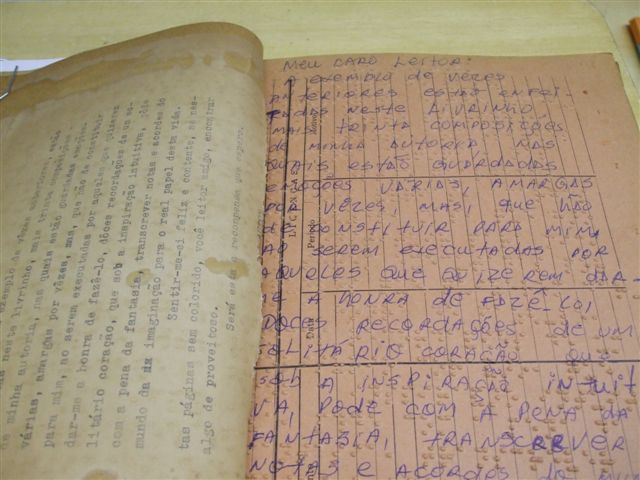 exemplo de vêzes
neste livrinho, mais trinta
de minha autoria, nas quais estão guardadas
várias, amargas por vêzes, mas, que hão de constituir
para mim, ao serem executadas por aqueles que quizerem
dar-me a honra de fazê-lo, dôces recordações de um so-
litário coração, que sob a inspiração intuitiva, pôde
com a pena da fantasia, transcrever notas e acordes do
mundo da imaginação para o real papel desta vida.
Sentir-me-ei feliz e contente, se nes-
tas páginas sem colorido, você leitor amigo, encontrar
algo de proveitoso.
Será esta a recompensa que espero.
MEU CARO LEITOR:
A exemplo de vêzes
ANTERIORES ESTÃO ENFEI-
XADAS NESTE LIVRINHO,
MAIS TRINTA COMPOSIÇÕES
DE MINHA AUTORIA, NAS
QUAIS ESTÃO GUARDADAS
EMOÇÕES VÁRIAS, AMARGAS
POR VÊZES, MAS, QUE HÃO
DE CONSTITUIR PARA MIM,
AO SEREM EXECUTADAS POR
AQUELES QUE QUIZEREM DAR-
ME A HONRA DE FAZÊ-LO,
DOCES RECORDAÇÕES DE UM
SOLITÁRIO CORAÇÃO QUE
SOB A INSPIRAÇÃO INTUITI
VA, PÔDE COM A PENA DA
FANTASIA, TRANSCREVER
NOTAS E ACORDES DO